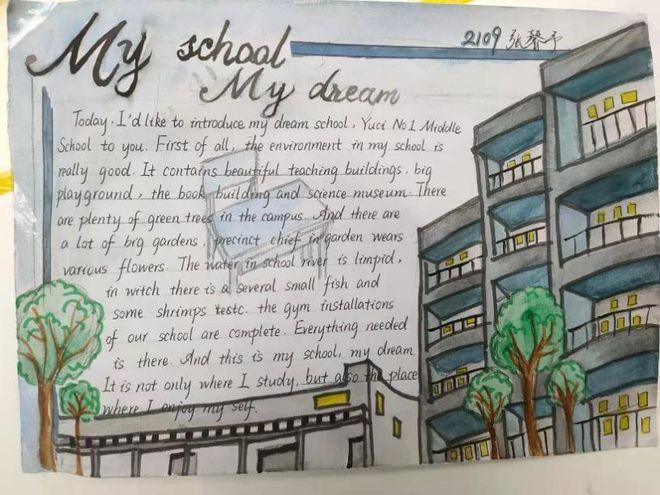 My school
2109 张馨予
My dream
Today, I'd like to introduce my dream school, Yuci No 1 Middle
School to you. First of all, the environment in my school is
really good. It contains beautiful teaching buildings, big
playground, the book building and science museum. There
are plenty of green trees in the campus. And there are
a lot of big gardens, precinct chief in garden wears
various flowers. The water in school river is limpid,
in witch there is a several small fish and
some shrimps testc. the gym installations
of our school are complete. Everything needed
is there. And this is my school, my dream
It is not only where I study, but also the place
where I enjoy my self.